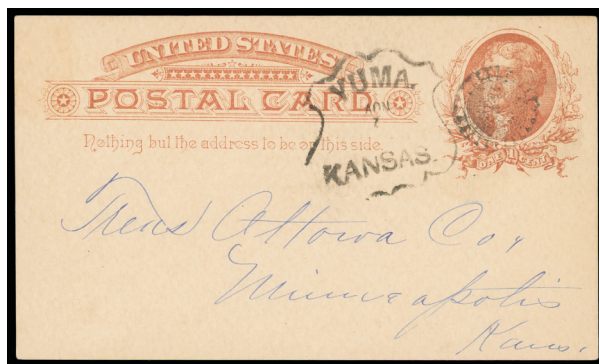 UNITED STATES
POSTAL CARD
Nothing but the address to be on this side.
YUMA
NOV
KANSAS
ONE CENT
Treas Ottowa Co,
Minneapolis
Kans.